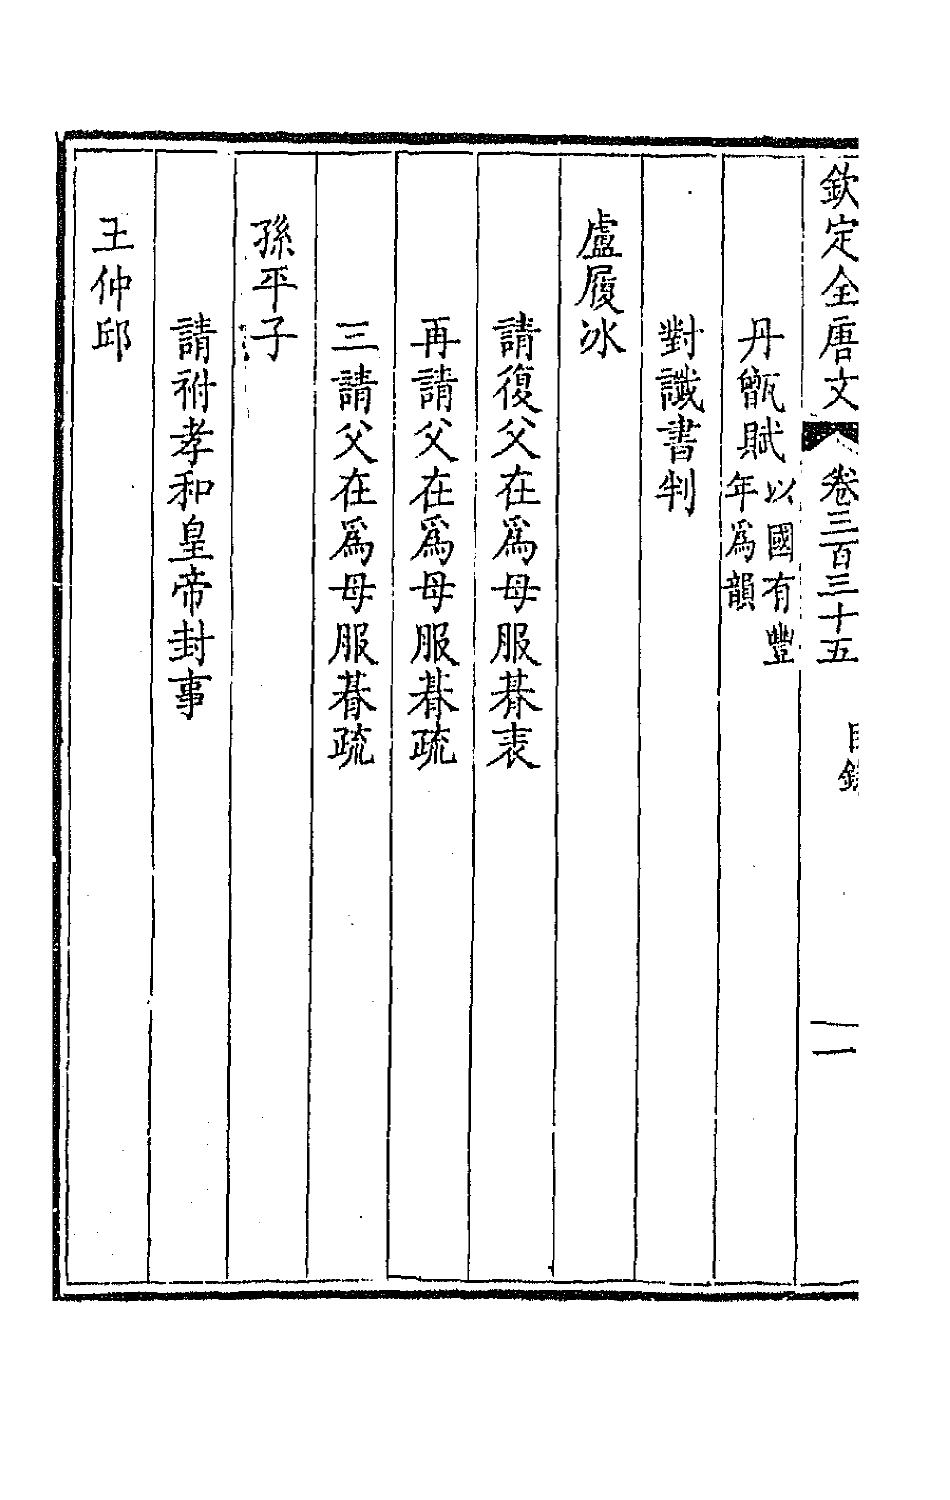 欽定全唐文 卷三百三十五 目錄 一
丹甑賦以國有豐年爲韻
對讖書判
盧履冰
請復父在爲母服朞表
再請父在爲母服朞疏
三請父在爲母服朞疏
孫平子
請祔孝和皇帝封事
王仲邱